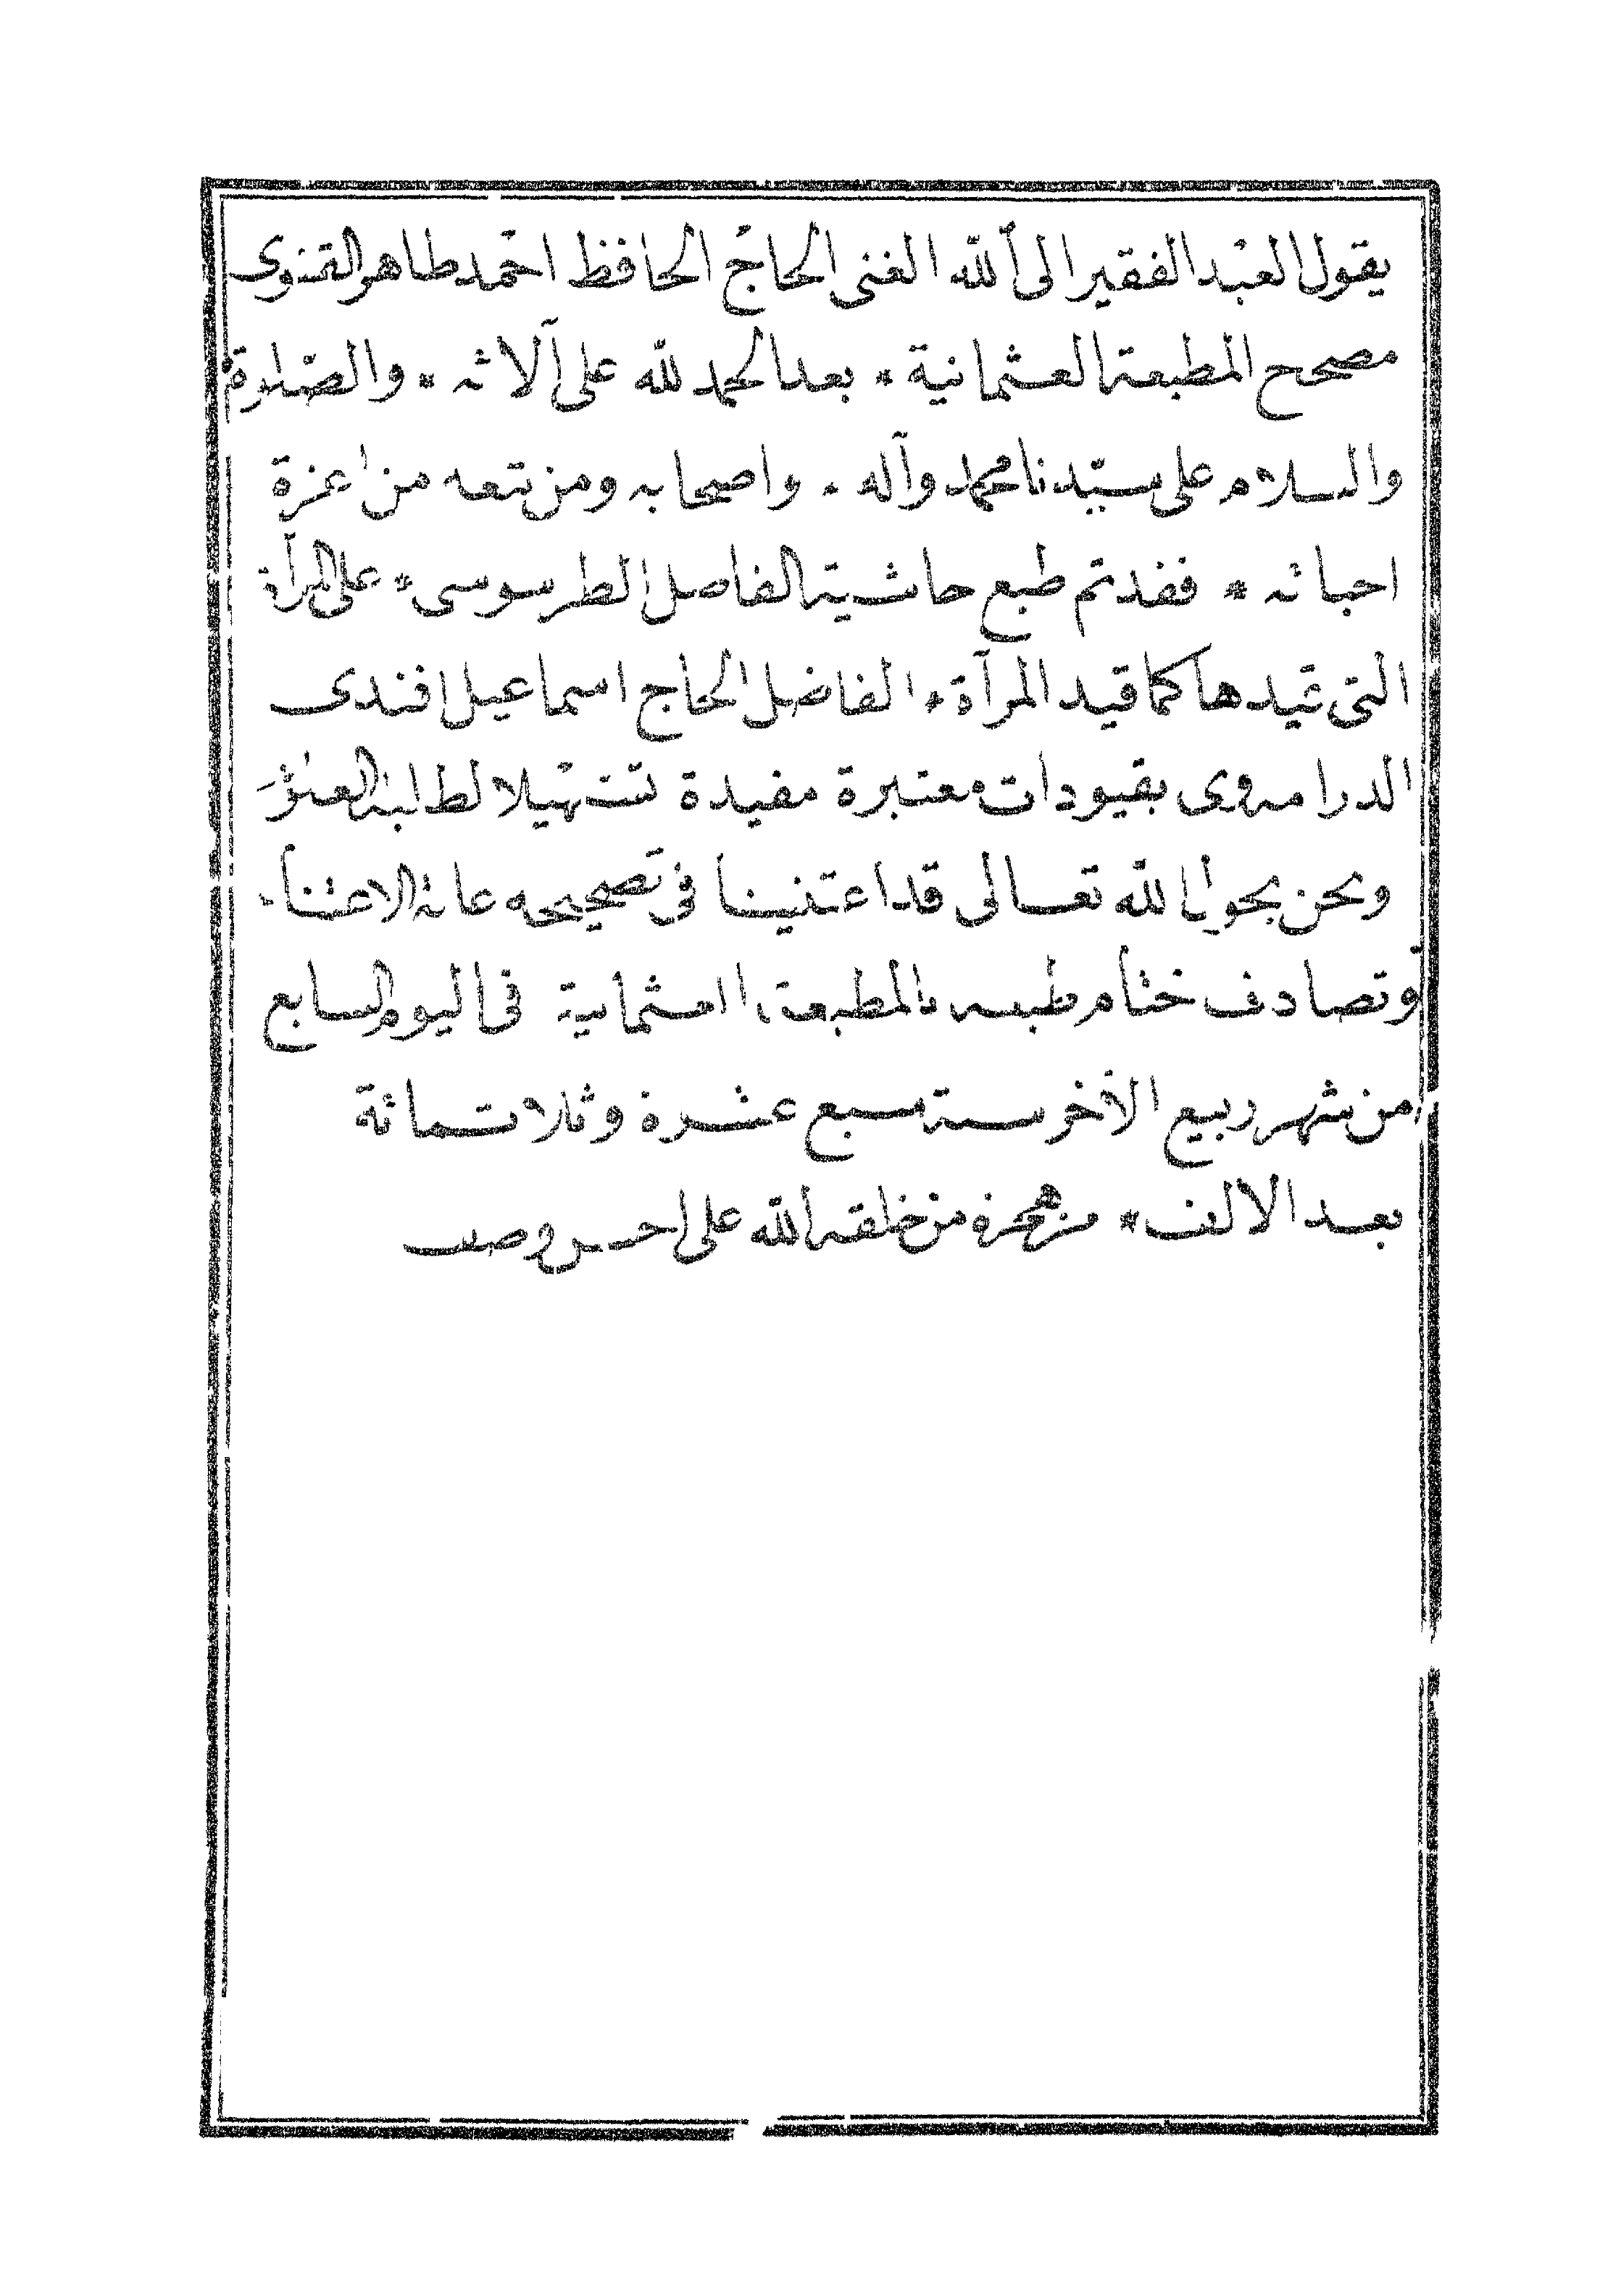 يقول العبد الفقير الى الله الغنى الحاج الحافظ احمد طاهر القنوى
مصحح المطبعة العثمانية * بعد الحمد لله على آلائه * والصلوة
والسلام على سيدنا محمد وآله * واصحابه ومن تبعه من اعزة
احبائه * فقد تم طبع حاشية الفاضل الطرسوسى * على المرآة
التى قيدها كما قيد المرآة * الفاضل الحاج اسماعيل افندى
الدرامه وى بقيودات معتبرة مفيدة تسهيلا لطلبة
ونحن بحول الله تعالى قد اعتنينا فى تصحيحه غاية الاعتناء
وتصادف ختام طبعه بالمطبعة العثمانية فى اليوم السابع
من شهر ربيع الآخر سنة سبع عشرة وثلاثمائة
بعد الالف * من هجرة من خلقه الله على احسن وصف